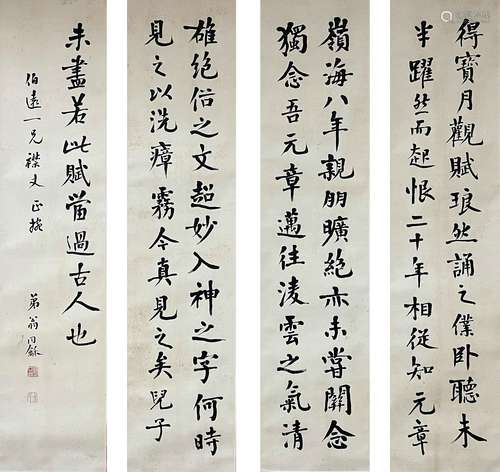 得寶月觀賦琅然誦之僕卧聽未
半躍然而起恨二十年相從知元章
嶺海八年親朋曠絕亦未嘗關念
獨念吾元章邁往淩雲之氣清
雄絕俗之文超妙入神之字何時
見之以洗瘴霧今真見之矣兒子
未盡若此賦當過古人也
伯遠一兄襟丈正捥
弟翁同龢